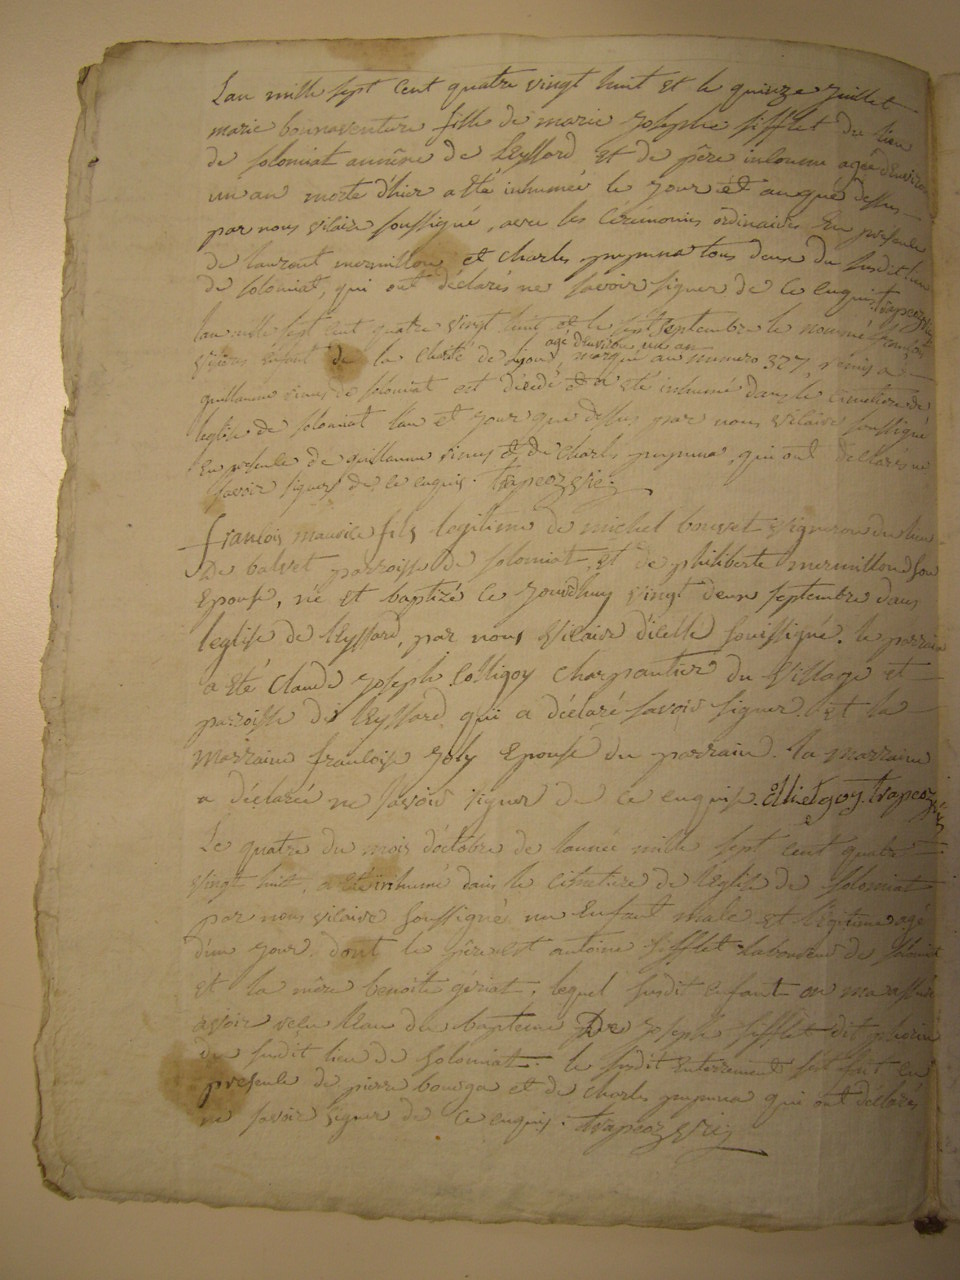 Lan mille sept cent quatre vingt huit et le quinze juillet
marie bonnaventure fille de marie josephe sifflet du lieu
de soloniat annéxe de leyssard et de pere inconnu agée d'environ
un an morte d'hier a été inhumée le jour et an que dessus
par nous vicaire soussigné, avec les cérémonies ordinaires En presence
de laurent mermillon et charles tous deux du susdit lieu
de soloniat, qui ont déclarés ne savoir signer de ce enquis.
lan mille sept cent quatre vingt huit et le sept septembre le nommé
agé d'environ un an
de la charité de lyon marqué au numero 377, remis a
guillaume de soloniat est décédé et a été inhumé dans le cimetiere de
leglise de soloniat lan et jour que dessus par nous vicaire soussigné
En presence de guillaume et de charles, qui ont déclarés ne
savoir signer de ce enquis.
francois maurice fils legitime de michel vigneron du lieu
De balvet parroisse de soloniat, et de philiberte mermillond son
Epouse, né et baptizé ce jourdhuy vingt deux septembre dans
leglise de leyssard, par nous vicaire dicelle soussigné. le parrain
a été Claude joseph Charpantier du village et
parroisse de leyssard qui a déclaré savoir signer. et la
marraine francoise joly Epouse du parrain. la marraine
a déclarée ne savoir signer de ce enquise.
Le quatre du mois d'octobre de lannée mille sept cent quatre
vingt huit, a été inhumé dans le cimetiere de leglise de soloniat
par nous vicaire soussigné un Enfant male et légitime agé
d'un jour, dont le père est antoine sifflet Laboureur de
et la mère benoite gériat, lequel susdit enfant on ma assuré
avoir reçu leau du bapteme De joseph sifflet dit
du susdit lieu de soloniat. le susdit Enterrement sest fait en
presence de pierre et de charles qui ont déclarés
ne savoir signer de ce enquis.